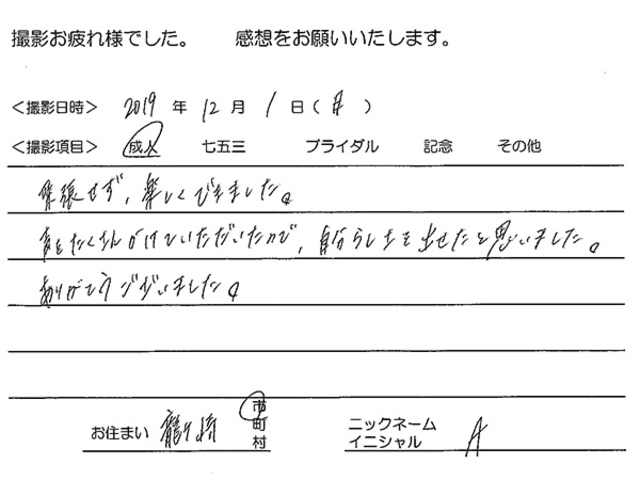 撮影お疲れ様でした。 感想をお願いいたします。
＜撮影日時＞ 2019 年 12 月 1 日（日）
＜撮影項目＞ 成人 七五三 ブライダル 記念 その他
緊張せず、楽しくできました。
声をたくさんかけていただいたので、自分らしさを出せたと思いました。
ありがとうございました。
お住まい 龍ヶ崎 市町村 ニックネーム イニシャル A